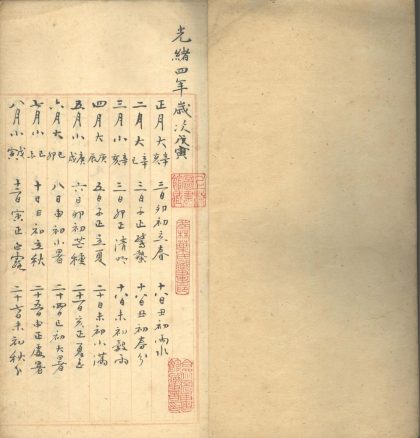 光緒四年歲次戊寅
正月大 辛亥 三日卯初立春 十八日丑初雨水
二月大 辛巳 三日子正驚蟄 十八日丑初春分
三月小 辛亥 三日卯正清明 十八日未初穀雨
四月大 庚辰 五日子正立夏 二十日未初小滿
五月小 庚戌 六日卯初芒種 二十一日亥正夏至
六月大 己卯 八日申初小暑 二十四日巳初大暑
七月小 己酉 十日丑初立秋 二十五日申正處暑
八月小 戊寅 十二日寅正白露 二十七日未初秋分